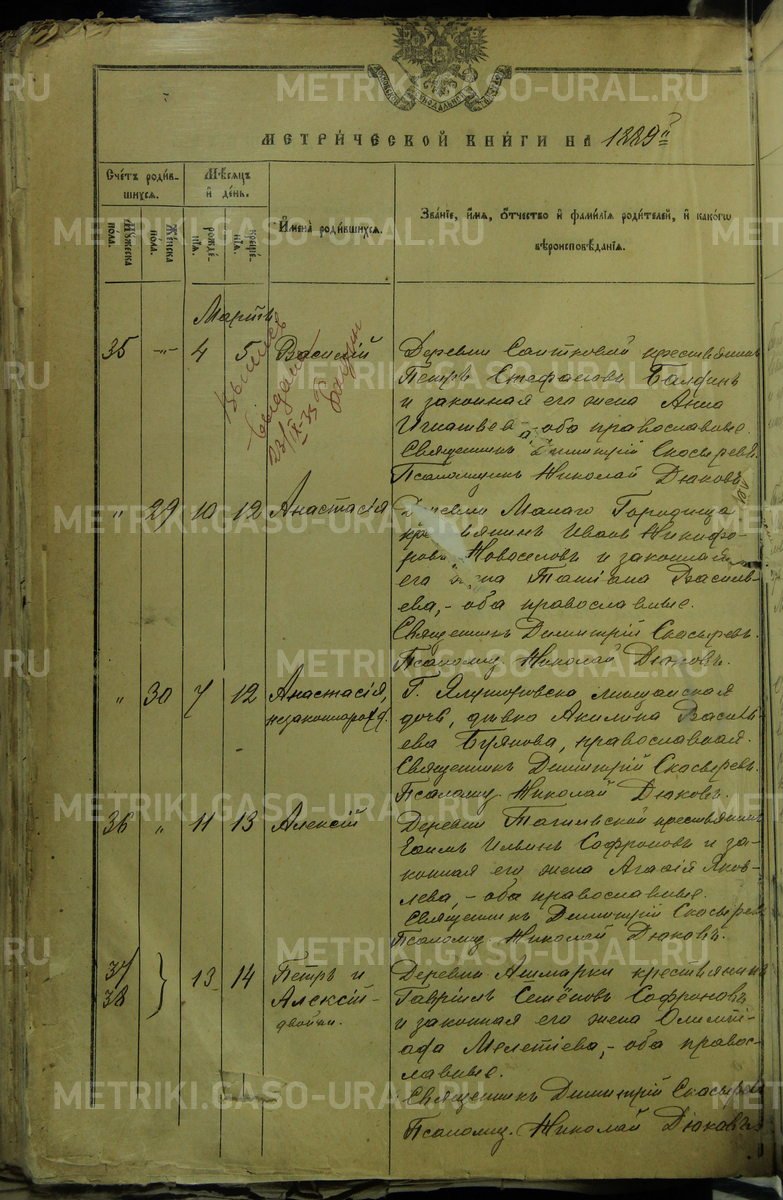 МЕТРИЧЕСКОЙ КНИГИ НА 1889 г
Счетъ родив-
шихся.
Мѣсяцъ
и день.
Имена родившихся.
Званіе, имя, отчество и фамилія родителей, и какого
вѣроисповѣданія.
Мужеска
пола.
Женска
пола.
рожде-
нія.
креще-
нія.
Мартъ
35 -"- 4 5 Василій
Выпись
выдана
23/IX-35
Деревни крестьянинъ
Петръ Стефановъ Балдинъ
и законная его жена Анна
Игнатьева - оба православные.
Священникъ Димитрій Скосыревъ.
Псаломщикъ Николай Дюковъ.
" 29 10 12 Анастасія
Деревни Малаго Городища
крестьянинъ Иванъ Никифо-
ровъ Новоселовъ и законная
его жена Татіана Василь-
ева, - оба православные.
Священникъ Димитрій Скосыревъ.
Псаломщ. Николай Дюковъ.
" 30 7 12 Анастасія,
незаконнорожд.
Г. Ялуторовска мещанская
дочь, дѣвка Акилина Василь-
ева Буянова, православная.
Священникъ Димитрій Скосыревъ.
Псаломщ. Николай Дюковъ.
36 " 11 13 Алексій
Деревни Тагильской крестьянинъ
Ефимъ Ильинъ Софроновъ и за-
конная его жена Агафія Яков-
лева, - оба православные.
Священникъ Димитрій Скосыревъ
Псаломщ. Николай Дюковъ.
37
38 } 13 14 Петръ и
Алексій -
двойни.
Деревни Ашмарки крестьянинъ
Гавріилъ Семёновъ Софроновъ
и законная его жена Олимпі-
ада Мелетіева, - оба правос-
лавные.
Священникъ Димитрій Скосыревъ
Псаломщ. Николай Дюковъ
METRIKI.GASO-URAL.RU